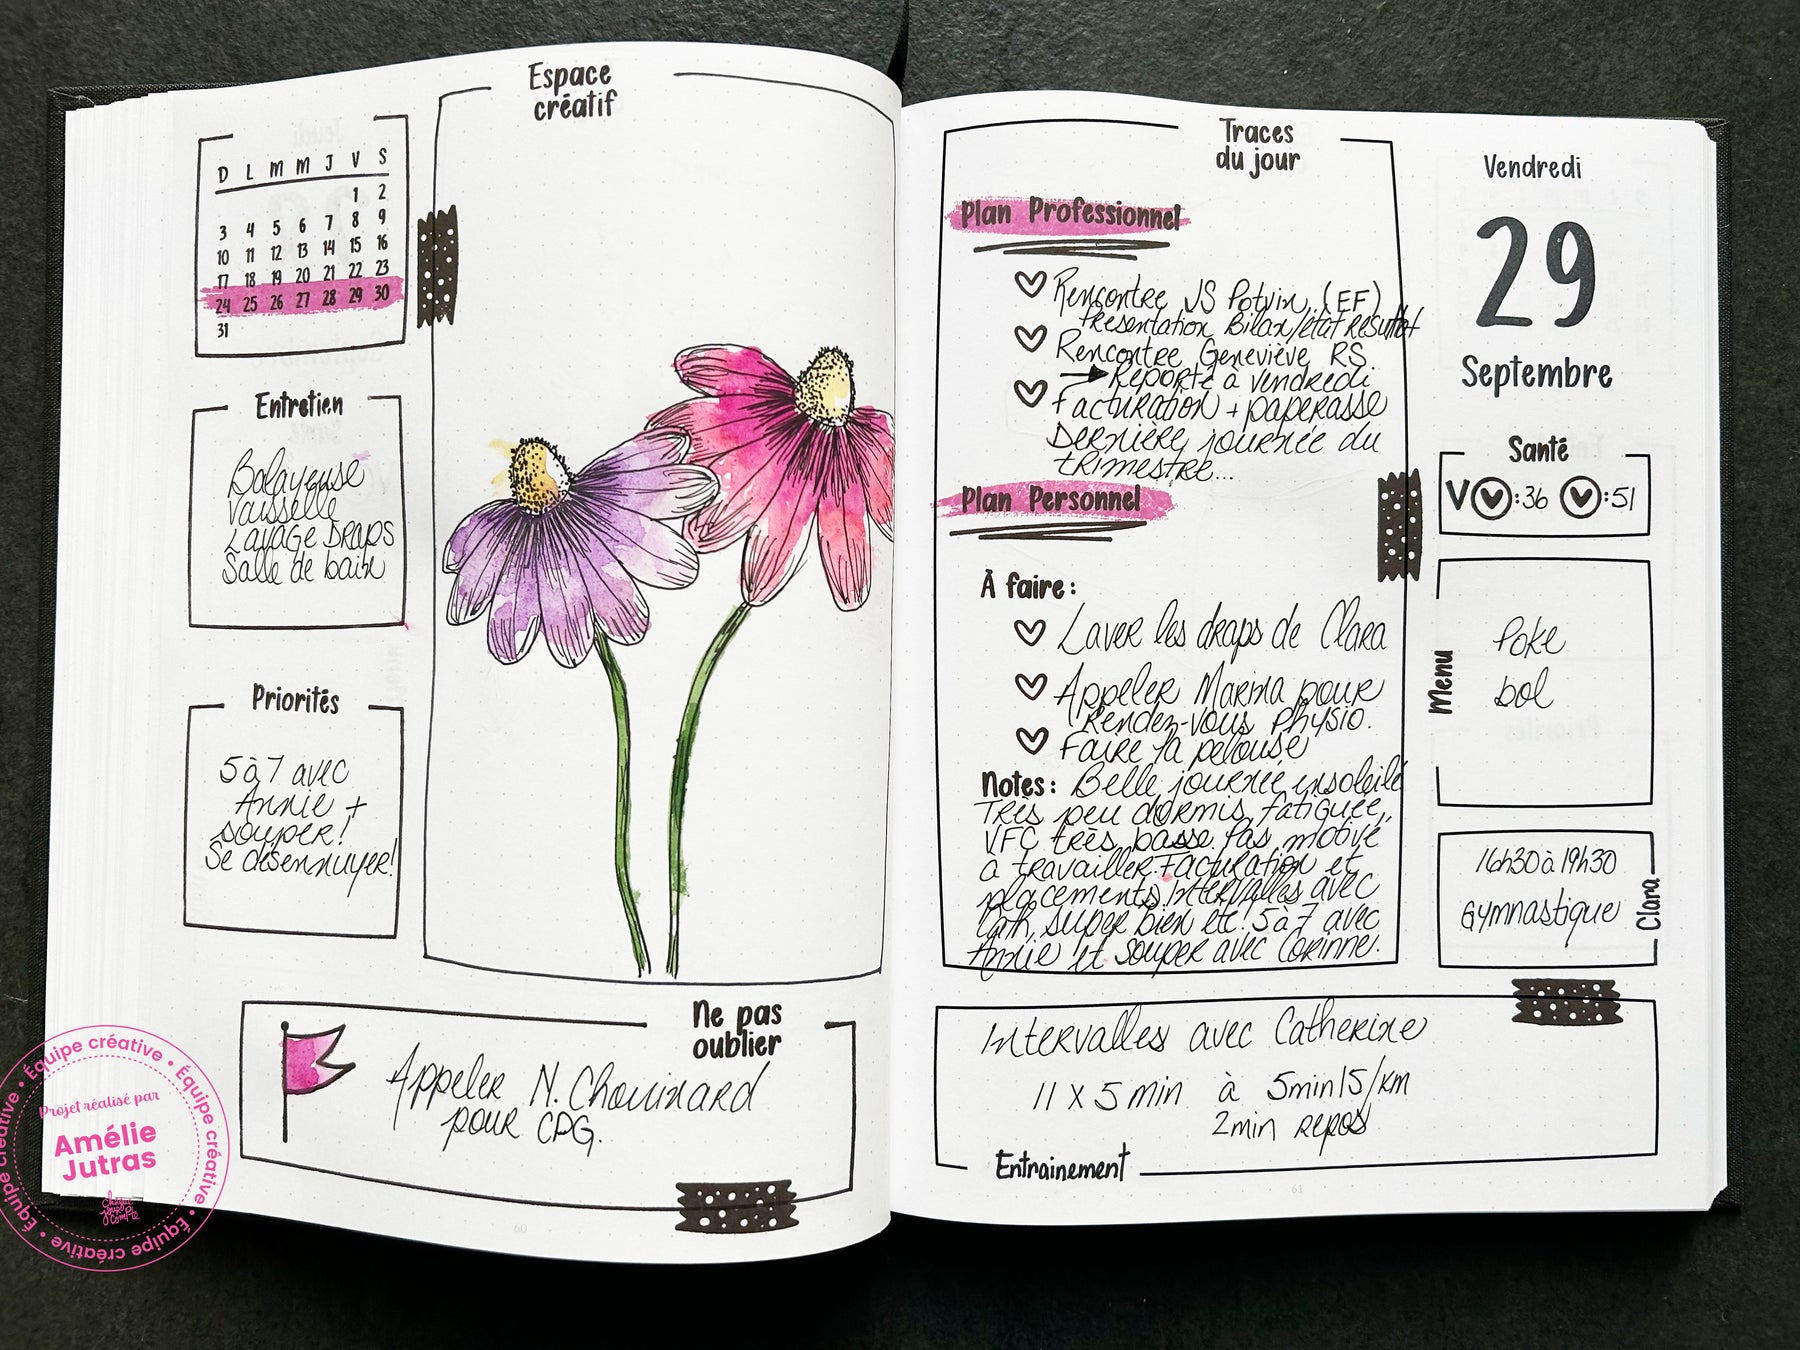 D L M M J V S
1 2
3 4 5 6 7 8 9
10 11 12 13 14 15 16
17 18 19 20 21 22 23
24 25 26 27 28 29 30
31
Entretien
Balayeuse
Vaisselle
Lavage DRaps
Salle de bain
Priorités
5 à 7 avec
Annie +
souper!
Se désennuyer!
Espace
créatif
Ne pas
oublier
Appeler N. Chouinard
pour CPG.
60
Traces
du jour
Plan Professionnel
Rencontre JS Potvin (EF)
Présentation Bilan/état résultat
Rencontre Geneviève RS
Reporté à vendredi
Facturation + paperasse
Dernière journée du
trimestre...
Plan Personnel
À faire:
Laver les draps de Clara
Appeler Marina pour
Rendez-vous physio.
Faire la pelouse
Notes: Belle journée ensoleillé
Très peu dormis, fatiguée,
VFC très basse. Pas motivé
à travailler. Facturation et
placements. Intervalles avec
Cath, super bien été! 5 à 7 avec
Annie et souper avec Corinne.
Vendredi
29
Septembre
Santé
V :36 :51
Menu
Poke
bol
16h30 à 19h30
Gymnastique
Clara
Intervalles avec Catherine
11 x 5 min à 5min15/km
2min repos
Entrainement
61
Équipe créative • Équipe créative • Équipe créative • Équipe créative •
Projet réalisé par
Amélie
Jutras
chaque
jour
compte